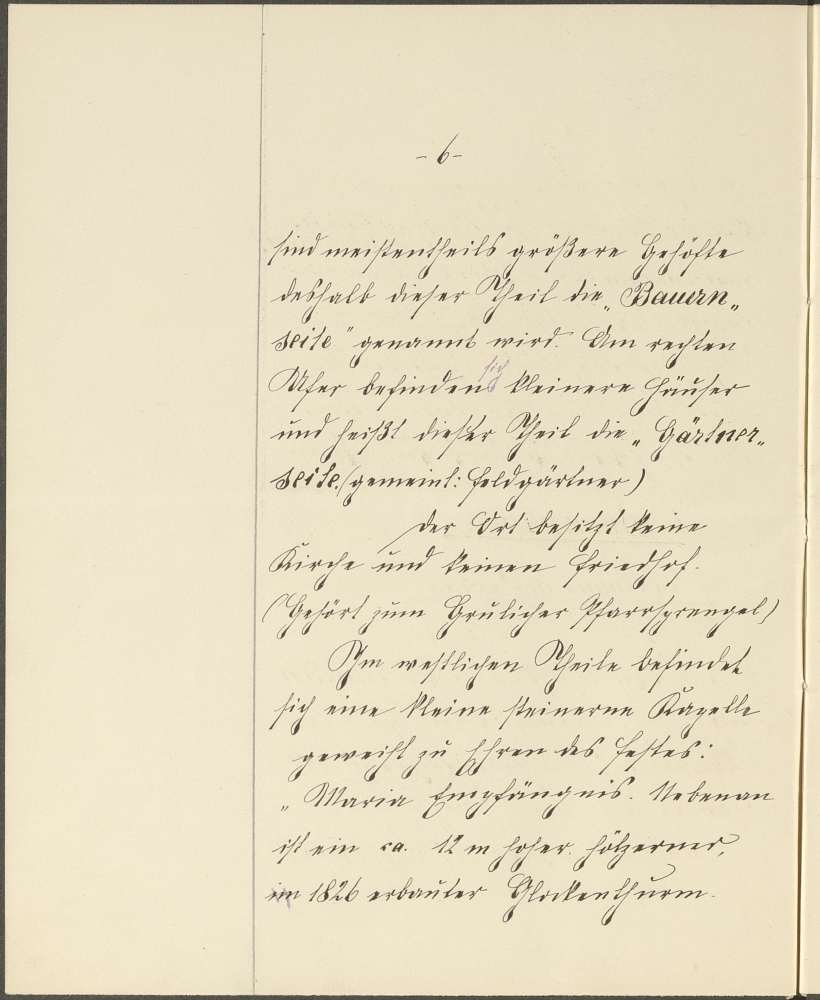 - 6 -
sind meistentheils größere Gehöfte
deshalb dieser Theil die „Bauern„
seite" genannt wird. Am rechten
Ufer befinden sich kleinere Häuser
und heißt dieser Theil die „Gärtner„
seite. (gemeint: Feldgärtner)
Der Ort besitzt keine
Kirche und keinen Friedhof.
(Gehört zum Grulicher Pfarrsprengel)
Im westlichen Theile befindet
sich eine kleine steinerne Kapelle
geweiht zu Ehren des Festes:
„Maria Empfängnis. Nebenan
ist ein ca. 12 m hoher, hölzerner,
im 1826 erbauter Glockenthurm.